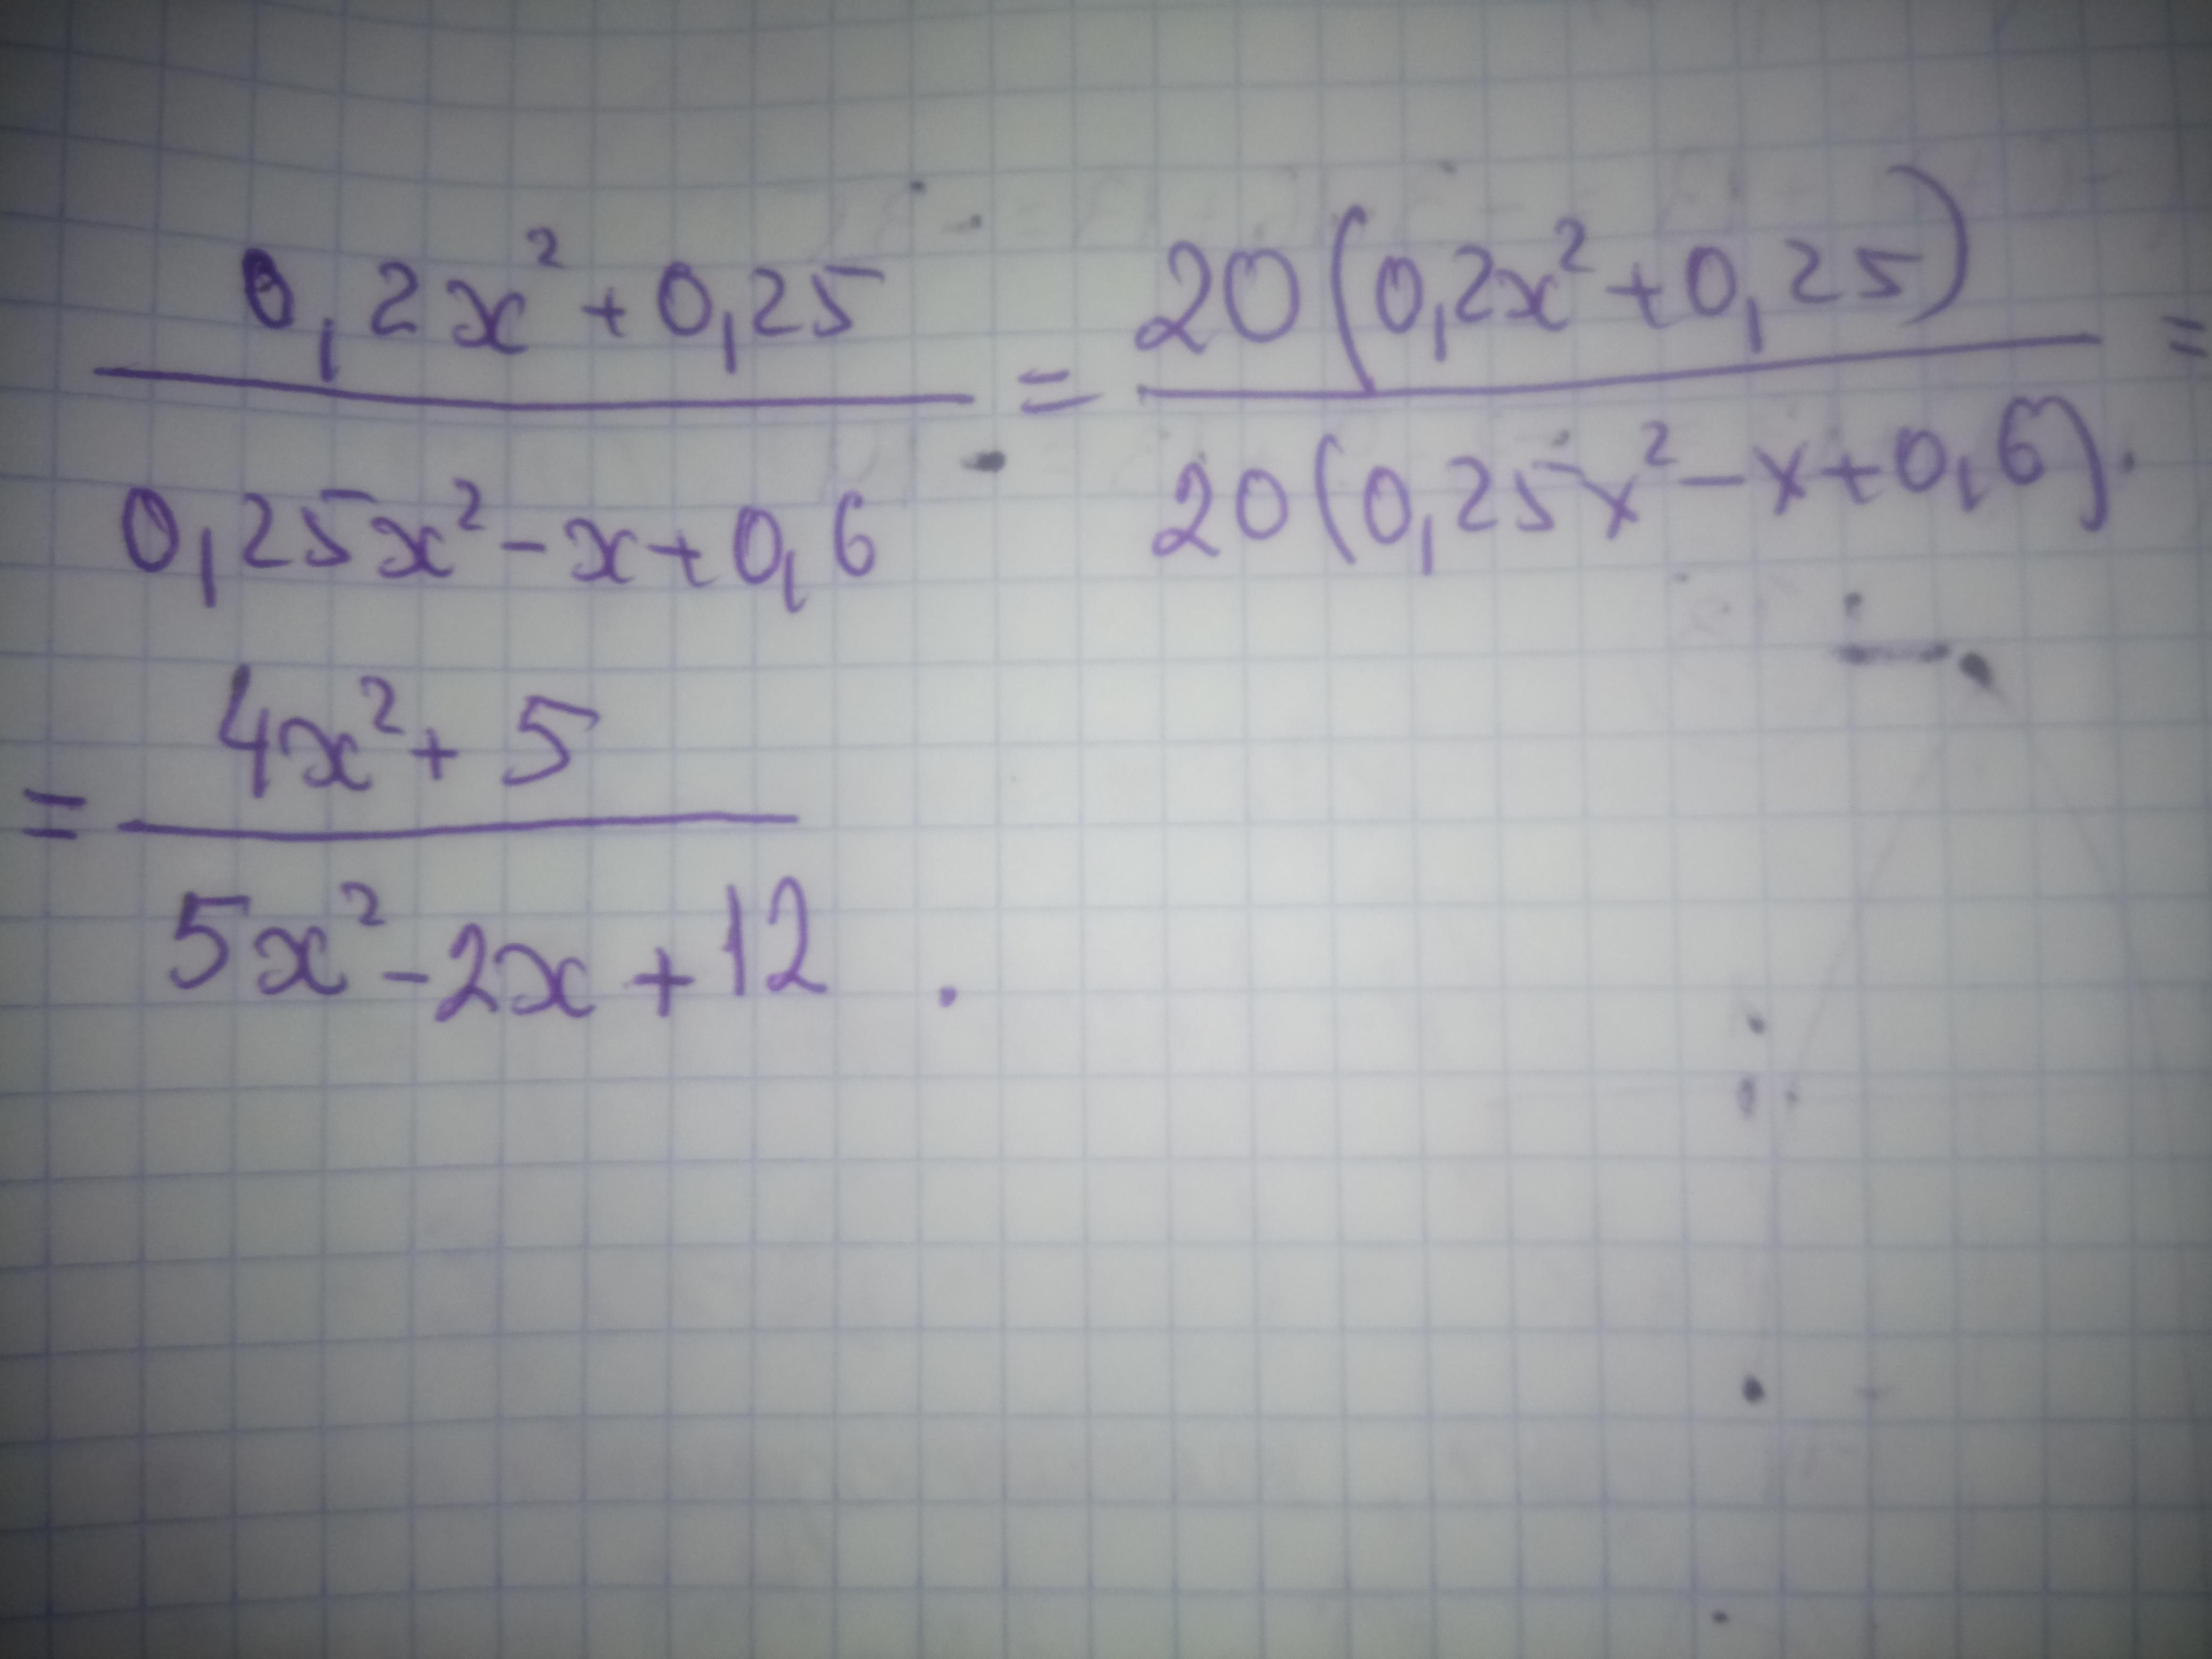 0,2x² + 0,25 / 0,25x² - x + 0,6 = 20(0,2x² + 0,25) / 20(0,25x² - x + 0,6) =
= 4x² + 5 / 5x² - 2x + 12 .